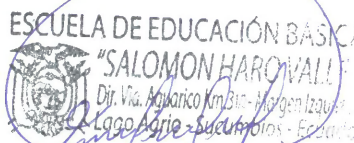 ESCUELA DE EDUCACIÓN BÁSICA
"SALOMON HARO VALL
Dir. Via. Aguarico Km 3½ - Margen Izquier
Lago Agrio - Sucumbíos - Ecuador